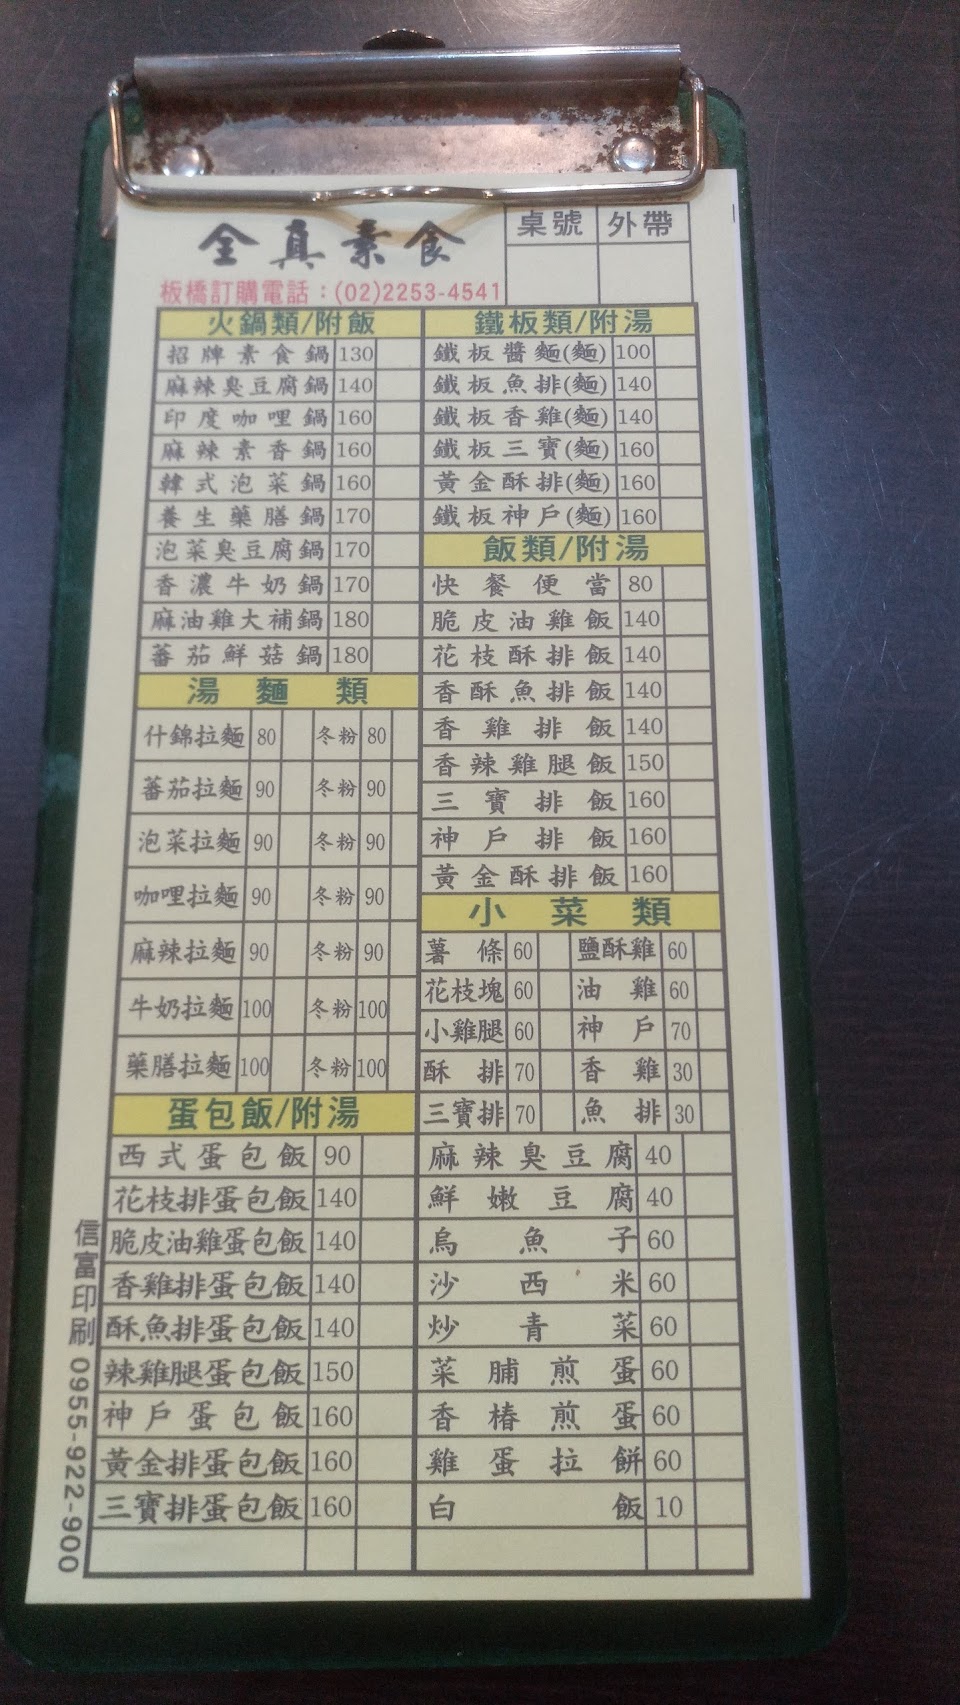 全真素食
桌號 外帶
板橋訂購電話：(02)2253-4541
火鍋類/附飯
招牌素食鍋 130
麻辣臭豆腐鍋 140
印度咖哩鍋 160
麻辣素香鍋 160
韓式泡菜鍋 160
養生藥膳鍋 170
泡菜臭豆腐鍋 170
香濃牛奶鍋 170
麻油雞大補鍋 180
蕃茄鮮菇鍋 180
湯麵類
什錦拉麵 80 冬粉 80
蕃茄拉麵 90 冬粉 90
泡菜拉麵 90 冬粉 90
咖哩拉麵 90 冬粉 90
麻辣拉麵 90 冬粉 90
牛奶拉麵 100 冬粉 100
藥膳拉麵 100 冬粉 100
蛋包飯/附湯
西式蛋包飯 90
花枝排蛋包飯 140
脆皮油雞蛋包飯 140
香雞排蛋包飯 140
酥魚排蛋包飯 140
辣雞腿蛋包飯 150
神戶蛋包飯 160
黃金排蛋包飯 160
三寶排蛋包飯 160
鐵板類/附湯
鐵板醬麵(麵) 100
鐵板魚排(麵) 140
鐵板香雞(麵) 140
鐵板三寶(麵) 160
黃金酥排(麵) 160
鐵板神戶(麵) 160
飯類/附湯
快餐便當 80
脆皮油雞飯 140
花枝酥排飯 140
香酥魚排飯 140
香雞排飯 140
香辣雞腿飯 150
三寶排飯 160
神戶排飯 160
黃金酥排飯 160
小菜類
薯條 60 鹽酥雞 60
花枝塊 60 油雞 60
小雞腿 60 神戶 70
酥排 70 香雞 30
三寶排 70 魚排 30
麻辣臭豆腐 40
鮮嫩豆腐 40
烏魚子 60
沙西米 60
炒青菜 60
菜脯煎蛋 60
香椿煎蛋 60
雞蛋拉餅 60
白飯 10
信富印刷 0955-922-900